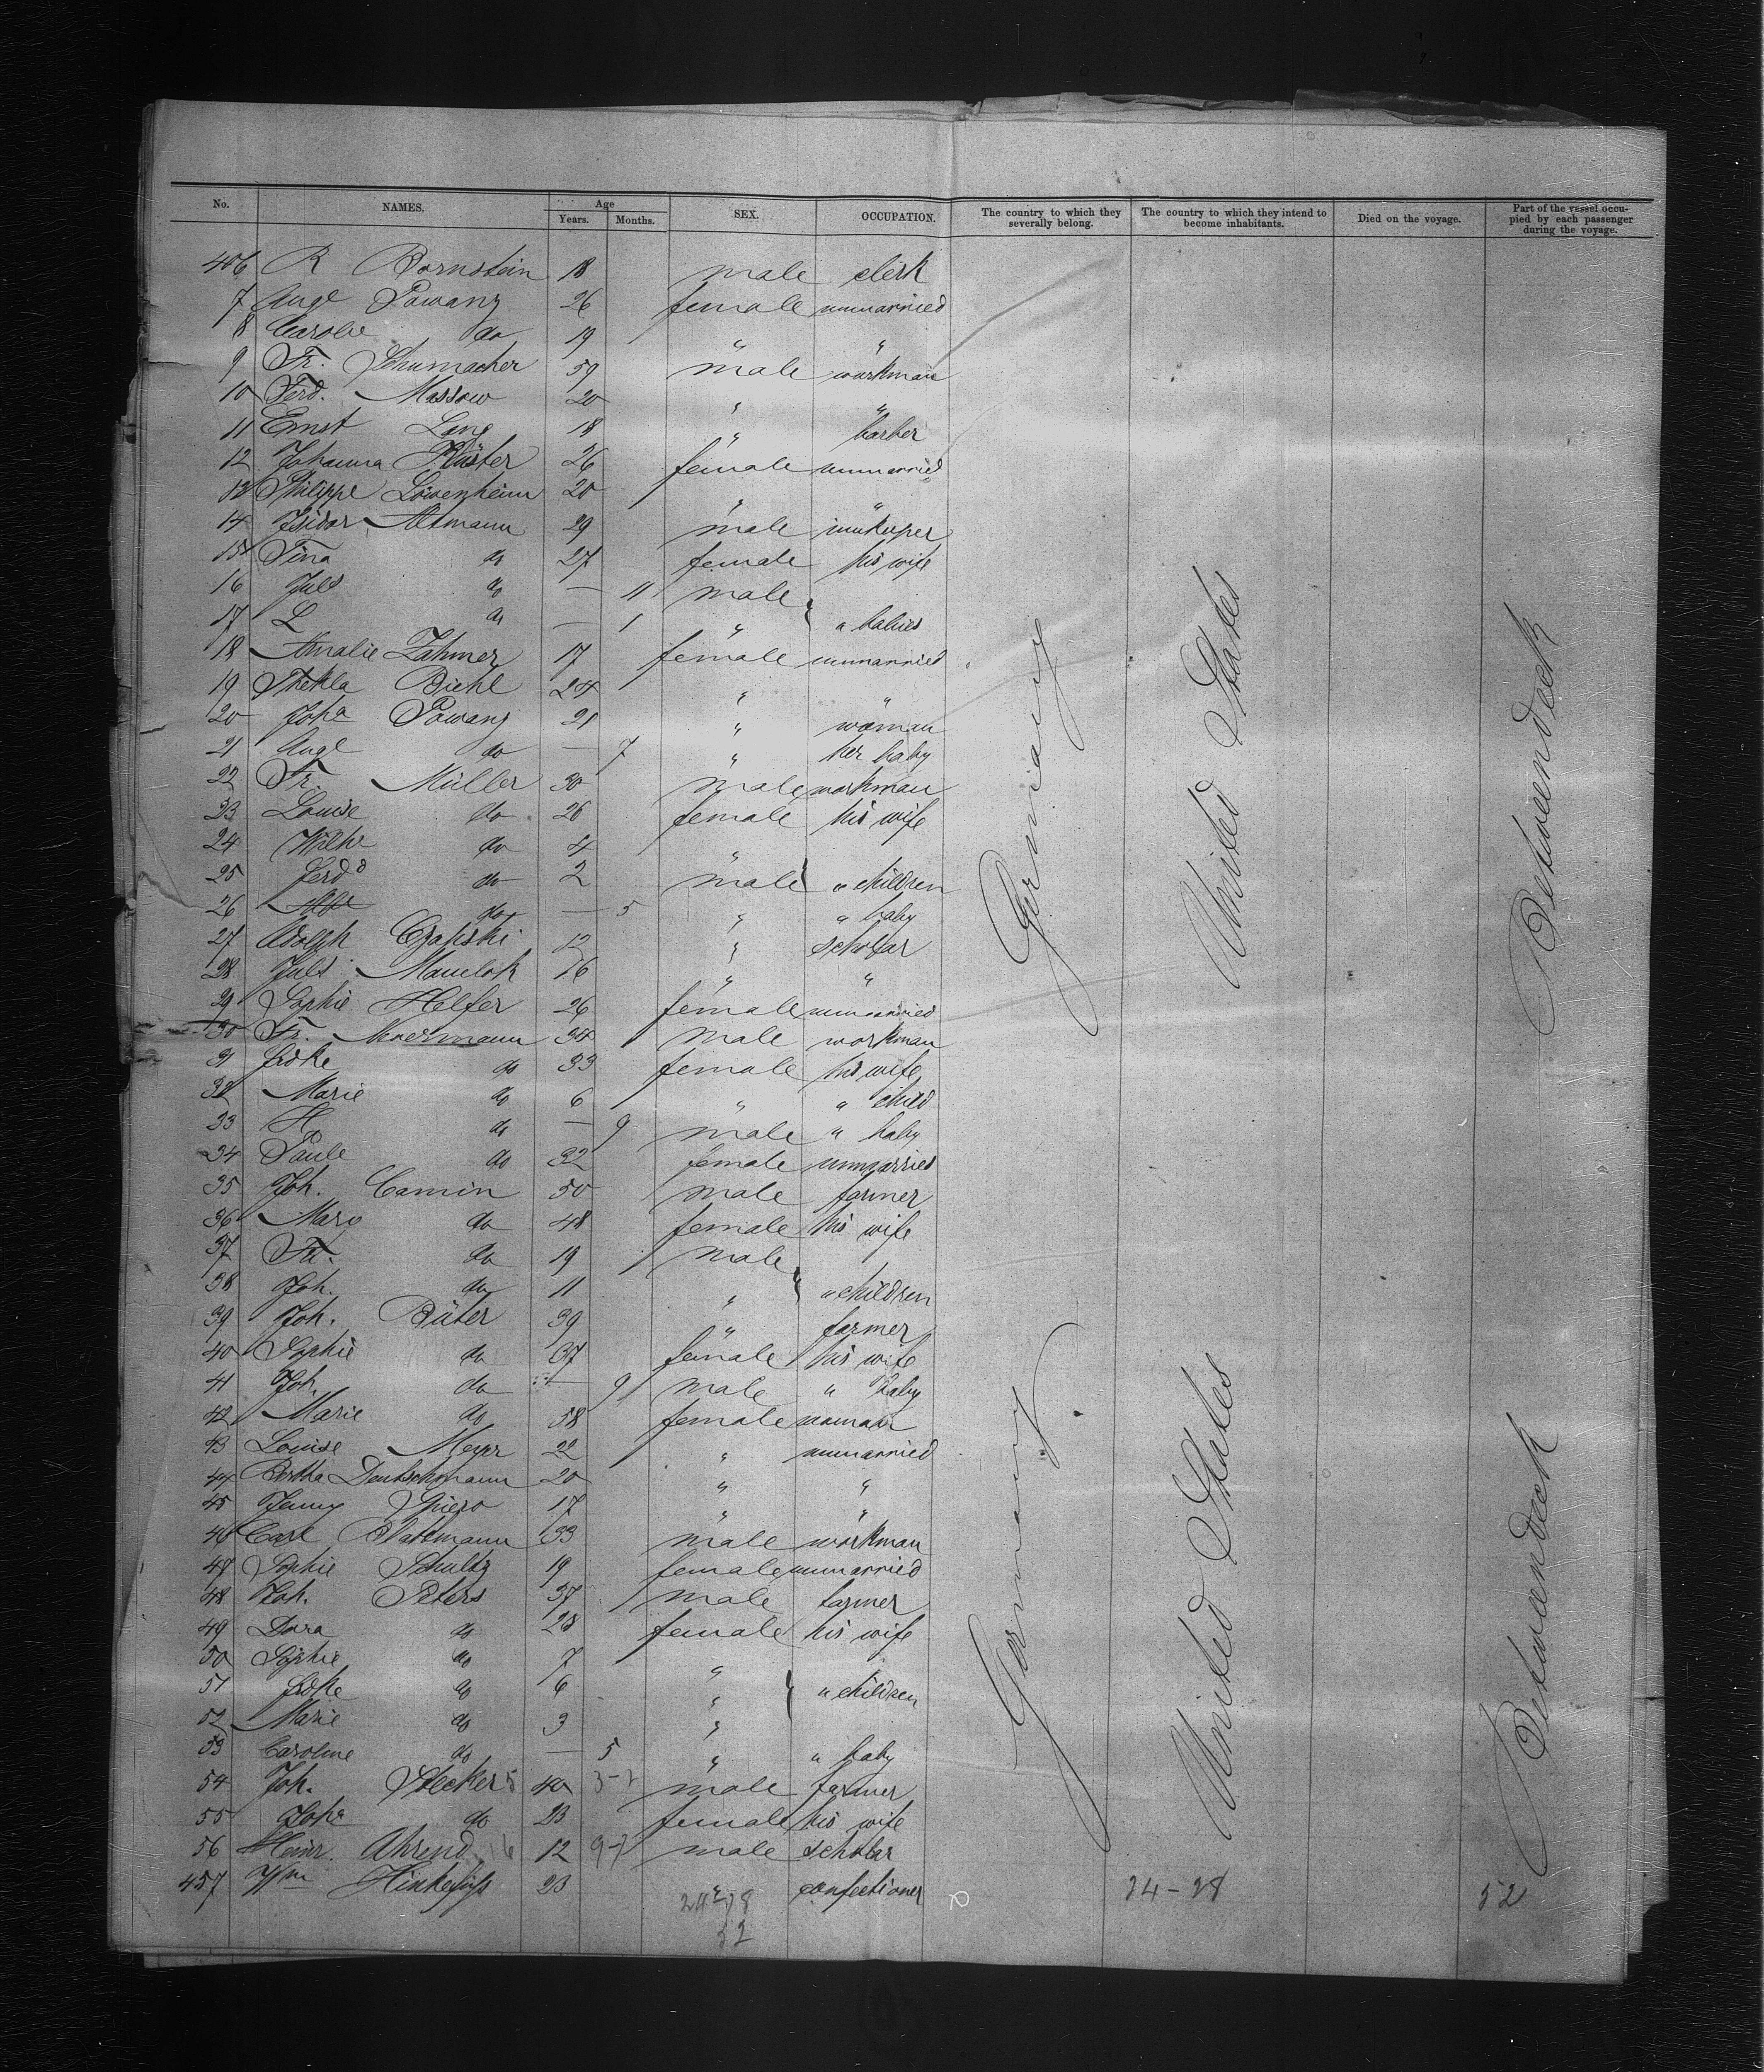 No. NAMES. Age Years. Months. SEX. OCCUPATION. The country to which they severally belong. The country to which they intend to become inhabitants. Died on the voyage. Part of the vessel occupied by each passenger during the voyage.
406 R Bornstein 18 male clerk
7 Auge Pawang 26 female unmarried
8 Carole do 19 " "
9 Fr. Schumacher 59 male workman
10 Ferd. Massow 20 " "
11 Ernst Lang 18 " barber
12 Johanna Küster 26 female unmarried
13 Philippe Löwenheim 20 " "
14 Isidor Altmann 29 male innkeeper
15 Tina do 27 female his wife
16 Juls do — 11 male
17 L do — 1 " " babies
18 Amalie Zahmer 17 female unmarried
19 Thekla Biehl 24 " "
20 Joha Pawang 21 " woman
21 Auge do — 7 " her baby
22 Fr. Müller 30 male workman
23 Louise do 26 female his wife
24 Wilhe do 4 "
25 Ferdd do 2 male " children
26 do — 5 " " baby
27 Adolph 12 " scholar
28 Juls Mamlok 16 " "
29 Sophie Helfer 26 female unmarried
30 Fr. Moermann 34 male workman
31 Fridke do 33 female his wife
32 Marie do 6 " " child
33 H do — 9 male " baby
34 Paule do 32 female unmarried
35 Joh. Camin 50 male farmer
36 Mary do 48 female his wife
37 Fr. do 19 male
38 Joh. do 11 " " children
39 Joh. Büter 39 " farmer
40 Sophie do 37 female his wife
41 Joh. do — 9 male " baby
42 Marie do 58 female woman
43 Louise Meyer 22 " unmarried
44 Bertha Deutschmann 20 " "
45 Jenny Spiero 17 " "
46 Carl Plattmann 33 male workman
47 Sophie Schultz 19 female unmarried
48 Joh. Peters 37 male farmer
49 Dora do 28 female his wife
50 Sophie do 7 "
51 Fridke do 6 " " children
52 Marie do 3 "
53 Caroline do — 5 " " baby
54 Joh. Stecker 40 male farmer
55 Joha do 23 female his wife
56 Heinr. Ahrend 12 male scholar
457 Wm Hinkefuss 23 " confectioner
Germany United States Betweendeck
Germany United States Betweendeck
24-28 52
32